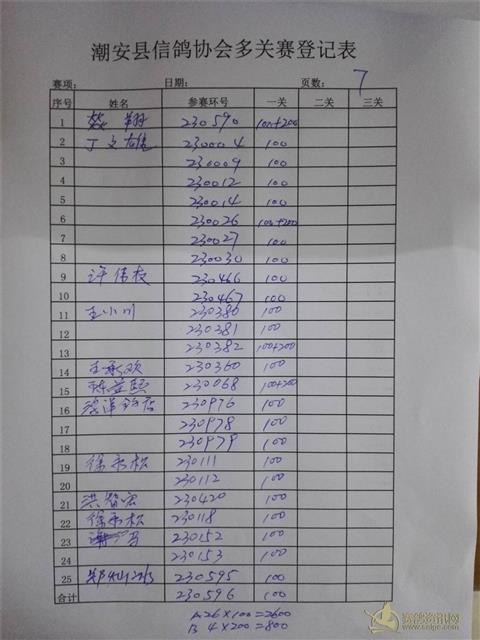 潮安县信鸽协会多关赛登记表
赛项: 日期: 页数: 7
序号 姓名 参赛环号 一关 二关 三关
1 230590 100+200
2 丁文雄 230004 100
3 230009 100
4 230012 100
5 230014 100
6 230026 100+200
7 230027 100
8 230030 100
9 许伟枝 230466 100
10 230467 100
11 王小川 230380 100
12 230381 100
13 230382 100+200
14 王承欢 230360 100
15 230068 100+200
16 230976 100
17 230978 100
18 230979 100
19 徐永松 230111 100
20 230112 100
21 洪智宏 230420 100
22 徐永松 230118 100
23 230152 100
24 230153 100
25 230595 100
合计 230596 100
A 26×100=2600
B 4×200=800